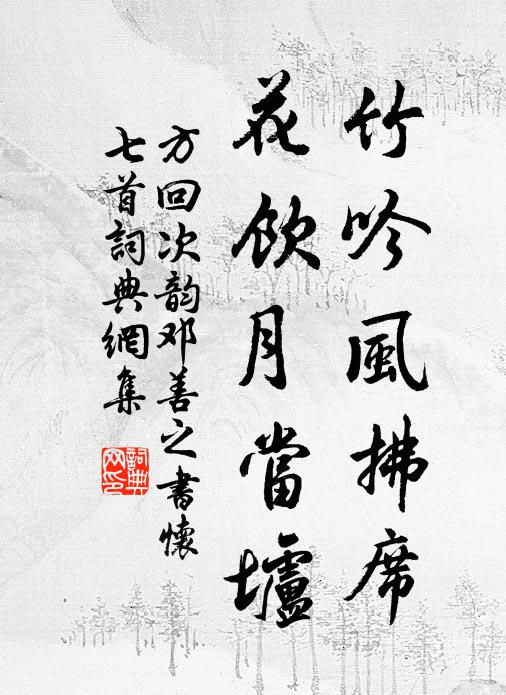 竹吟風拂席
花飲月當壚
方回次韵邓善之書懷
七首詞典網集
詞典网印